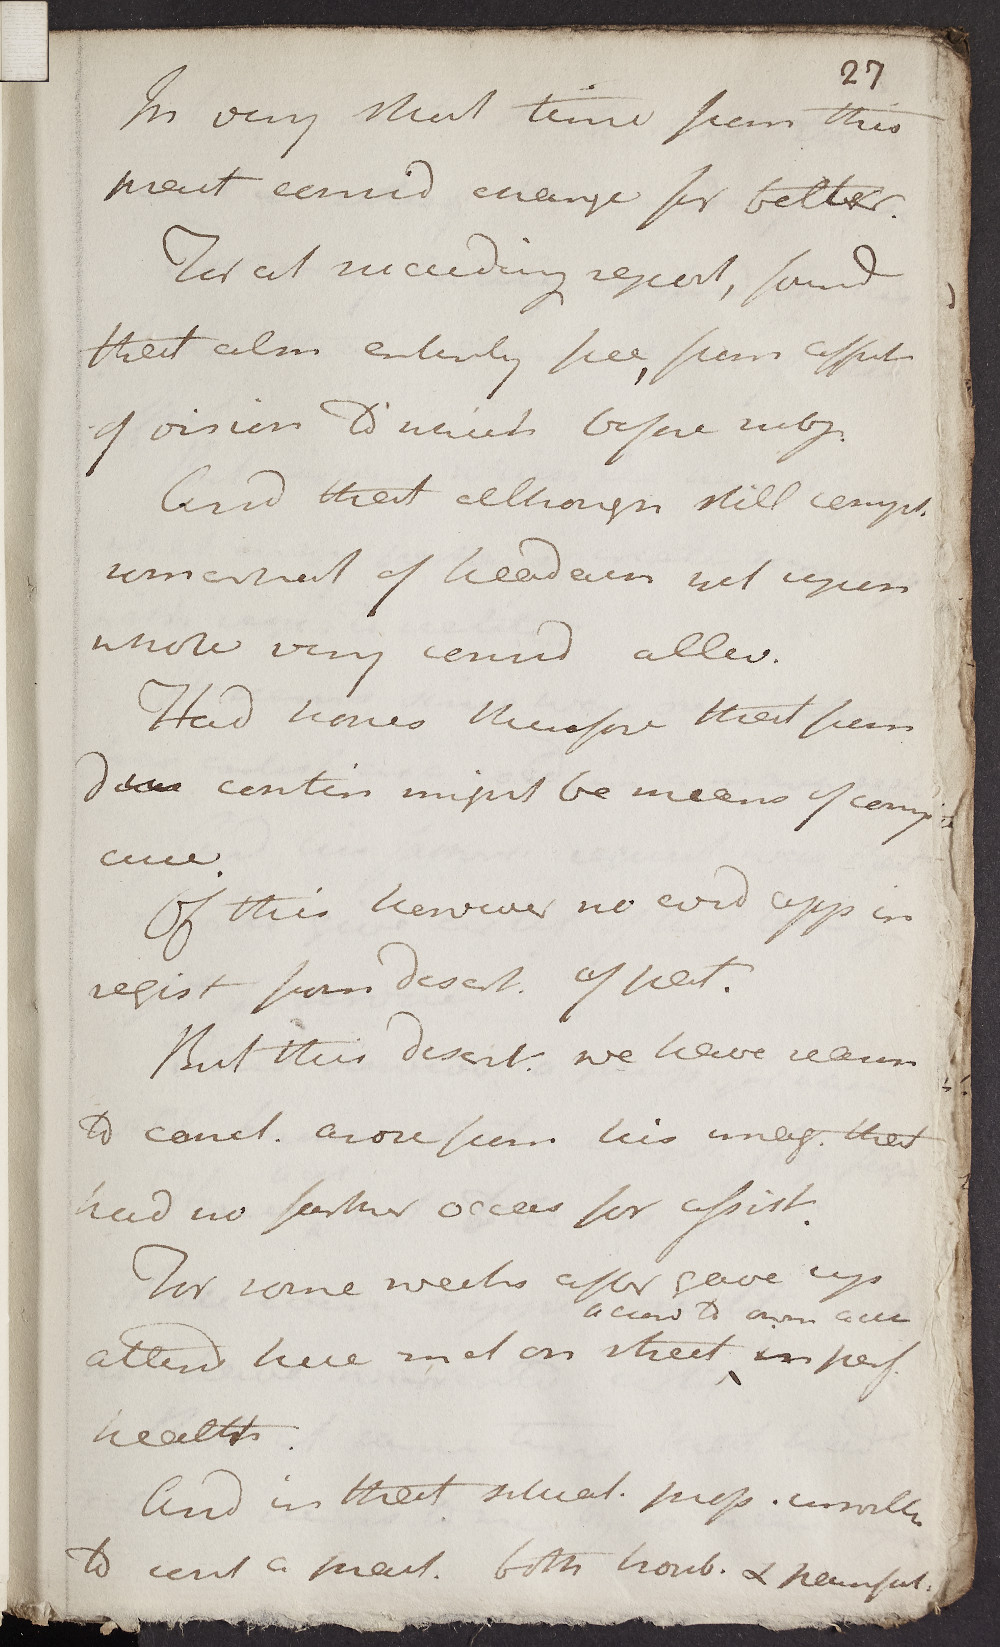 27
In very short time from this
pract consid change for better.
For at succeeding report, found
that alm entirely free, from affect
of vision to which before subj.
And that although still compl.
somewhat of headach yet upon
whole very consid allev.
Had hopes therefore that from
due contin might be means of comp
cure.
Of this however no evid app in
regist from desert. of pat.
But this desert. we have reason
to concl. arose from his imag. that
had no farther occas for assist.
For some weeks after gave up
accord to own acc
attend here met on street in perf.
health.
And in that situat. prof. unwilln
to cont a pract. both troub. & painful.